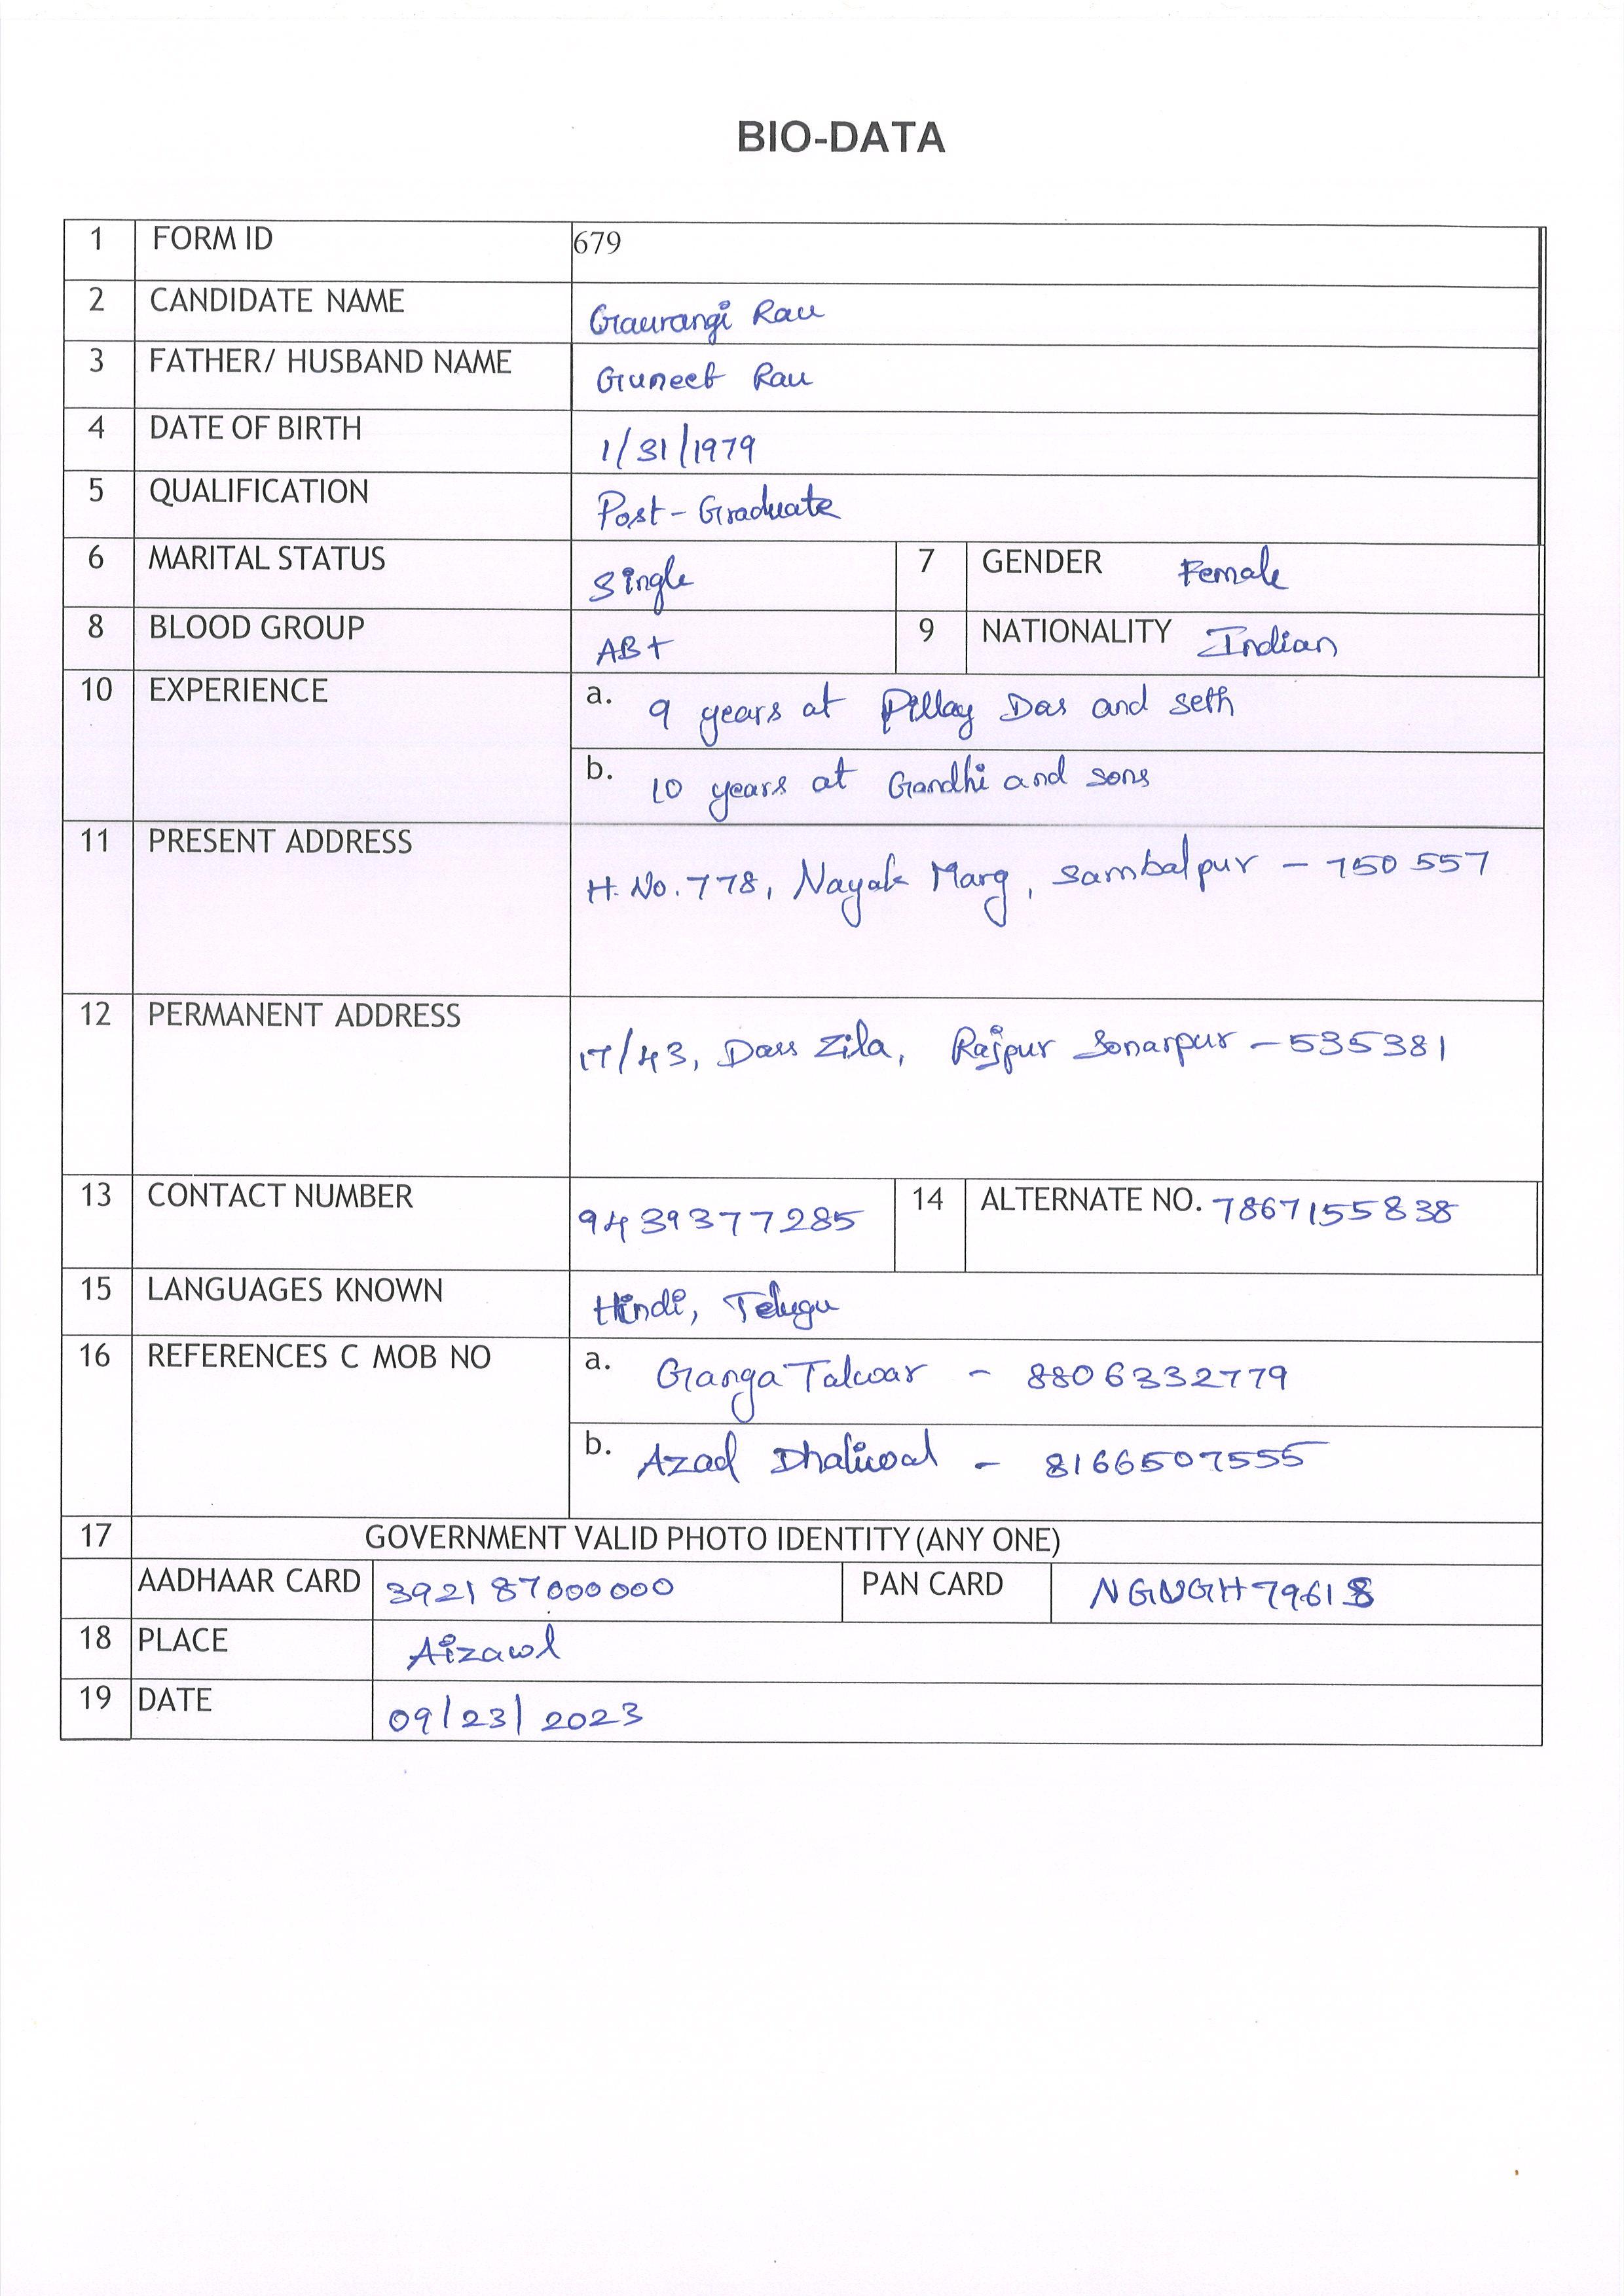 BIO-DATA
1 FORM ID 679
2 CANDIDATE NAME Gaurangi Rau
3 FATHER/ HUSBAND NAME Guneet Rau
4 DATE OF BIRTH 1/31/1979
5 QUALIFICATION Post-Graduate
6 MARITAL STATUS Single 7 GENDER Female
8 BLOOD GROUP AB+ 9 NATIONALITY Indian
10 EXPERIENCE a. 9 years at Pillay Das and Seth
b. 10 years at Gandhi and sons
11 PRESENT ADDRESS H.No.778, Nayak Marg, Sambalpur - 750557
12 PERMANENT ADDRESS 17/43, Dass Zila, Rajpur Sonarpur - 535381
13 CONTACT NUMBER 9439377285 14 ALTERNATE NO. 7867155838
15 LANGUAGES KNOWN Hindi, Telugu
16 REFERENCES C MOB NO a. Ganga Talwar - 8806332779
b. Azad Dhaliwal - 8166507555
17 GOVERNMENT VALID PHOTO IDENTITY (ANY ONE)
AADHAAR CARD 392187000000 PAN CARD
18 PLACE Aizawl
19 DATE 09/23/2023